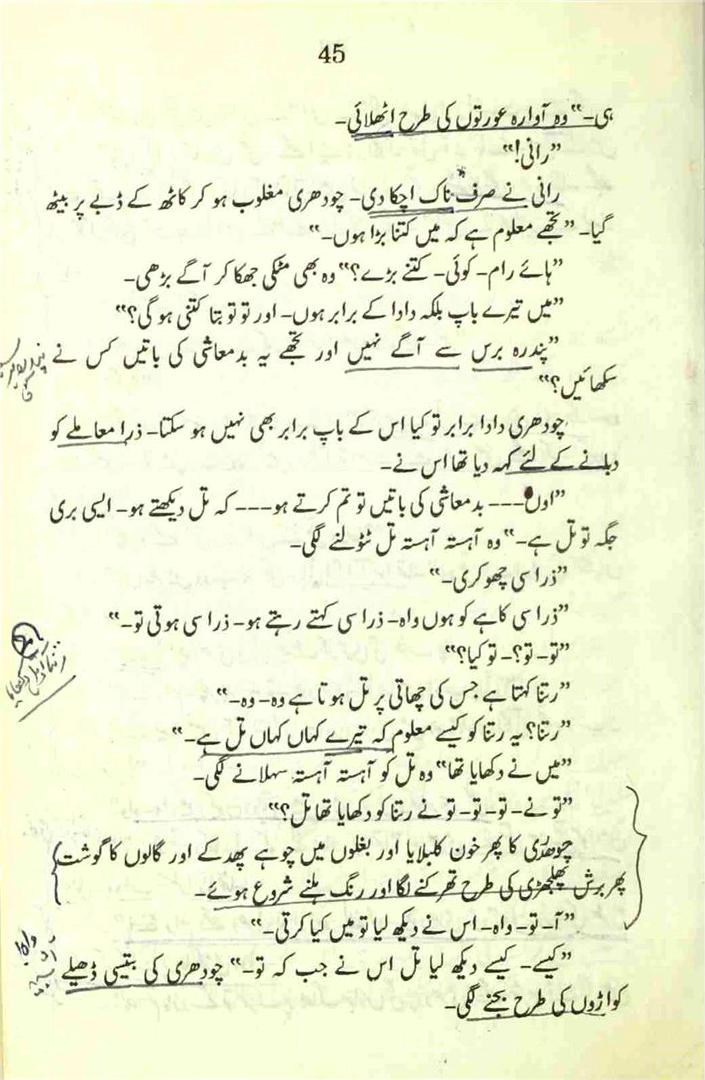 45
ہی۔" وہ آوارہ عورتوں کی طرح اٹھلائی۔
"رانی!"
رانی نے صرف ناک اچکا دی۔ چودھری مغلوب ہو کر کاٹھ کے ڈبے پر بیٹھ
گیا۔ "تجھے معلوم ہے کہ میں کتنا بڑا ہوں۔"
"ہائے رام۔ کوئی۔ کتنے بڑے؟" وہ بھی مٹکی جھکا کر آگے بڑھی۔
"میں تیرے باپ بلکہ دادا کے برابر ہوں۔ اور تو تو بتا کتنی ہو گی؟"
"پندرہ برس سے آگے نہیں اور تجھے یہ بدمعاشی کی باتیں کس نے
سکھائیں؟"
چودھری دادا برابر تو کیا اس کے باپ برابر بھی نہیں ہو سکتا۔ ذرا معاملے کو
دبانے کے لئے کہہ دیا تھا اس نے۔
"اوں --- بدمعاشی کی باتیں تو تم کرتے ہو --- کہ تل دیکھتے ہو۔ ایسی بری
جگہ تو تل ہے۔" وہ آہستہ آہستہ تل ٹٹولنے لگی۔
"ذرا سی چھوکری۔"
"ذرا سی کاہے کو ہوں واہ۔ ذرا سی کہتے رہتے ہو۔ ذرا سی ہوتی تو۔"
"تو۔ تو؟۔ تو کیا؟"
"رتنا کہتا ہے جس کی چھاتی پر تل ہوتا ہے وہ۔ وہ۔"
"رتنا؟ یہ رتنا کو کیسے معلوم کہ تیرے کہاں کہاں تل ہے۔"
"میں نے دکھایا تھا" وہ تل کو آہستہ آہستہ سہلانے لگی۔
"تو نے۔ تو۔ تو۔ تو نے رتنا کو دکھایا تھا تل؟"
چودھری کا پھر خون کلبلایا اور بغلوں میں چوہے پھدکے اور گالوں کا گوشت
پھر برش پھلجھڑی کی طرح تھرکنے لگا اور رنگ ہلنے شروع ہوئے۔
"آ۔ تو۔ واہ۔ اس نے دیکھ لیا تو میں کیا کرتی۔"
"کیسے۔ کیسے دیکھ لیا تل اس نے جب کہ تو۔" چودھری کی بتیسی ڈھیلے
کواڑوں کی طرح بجنے لگی۔